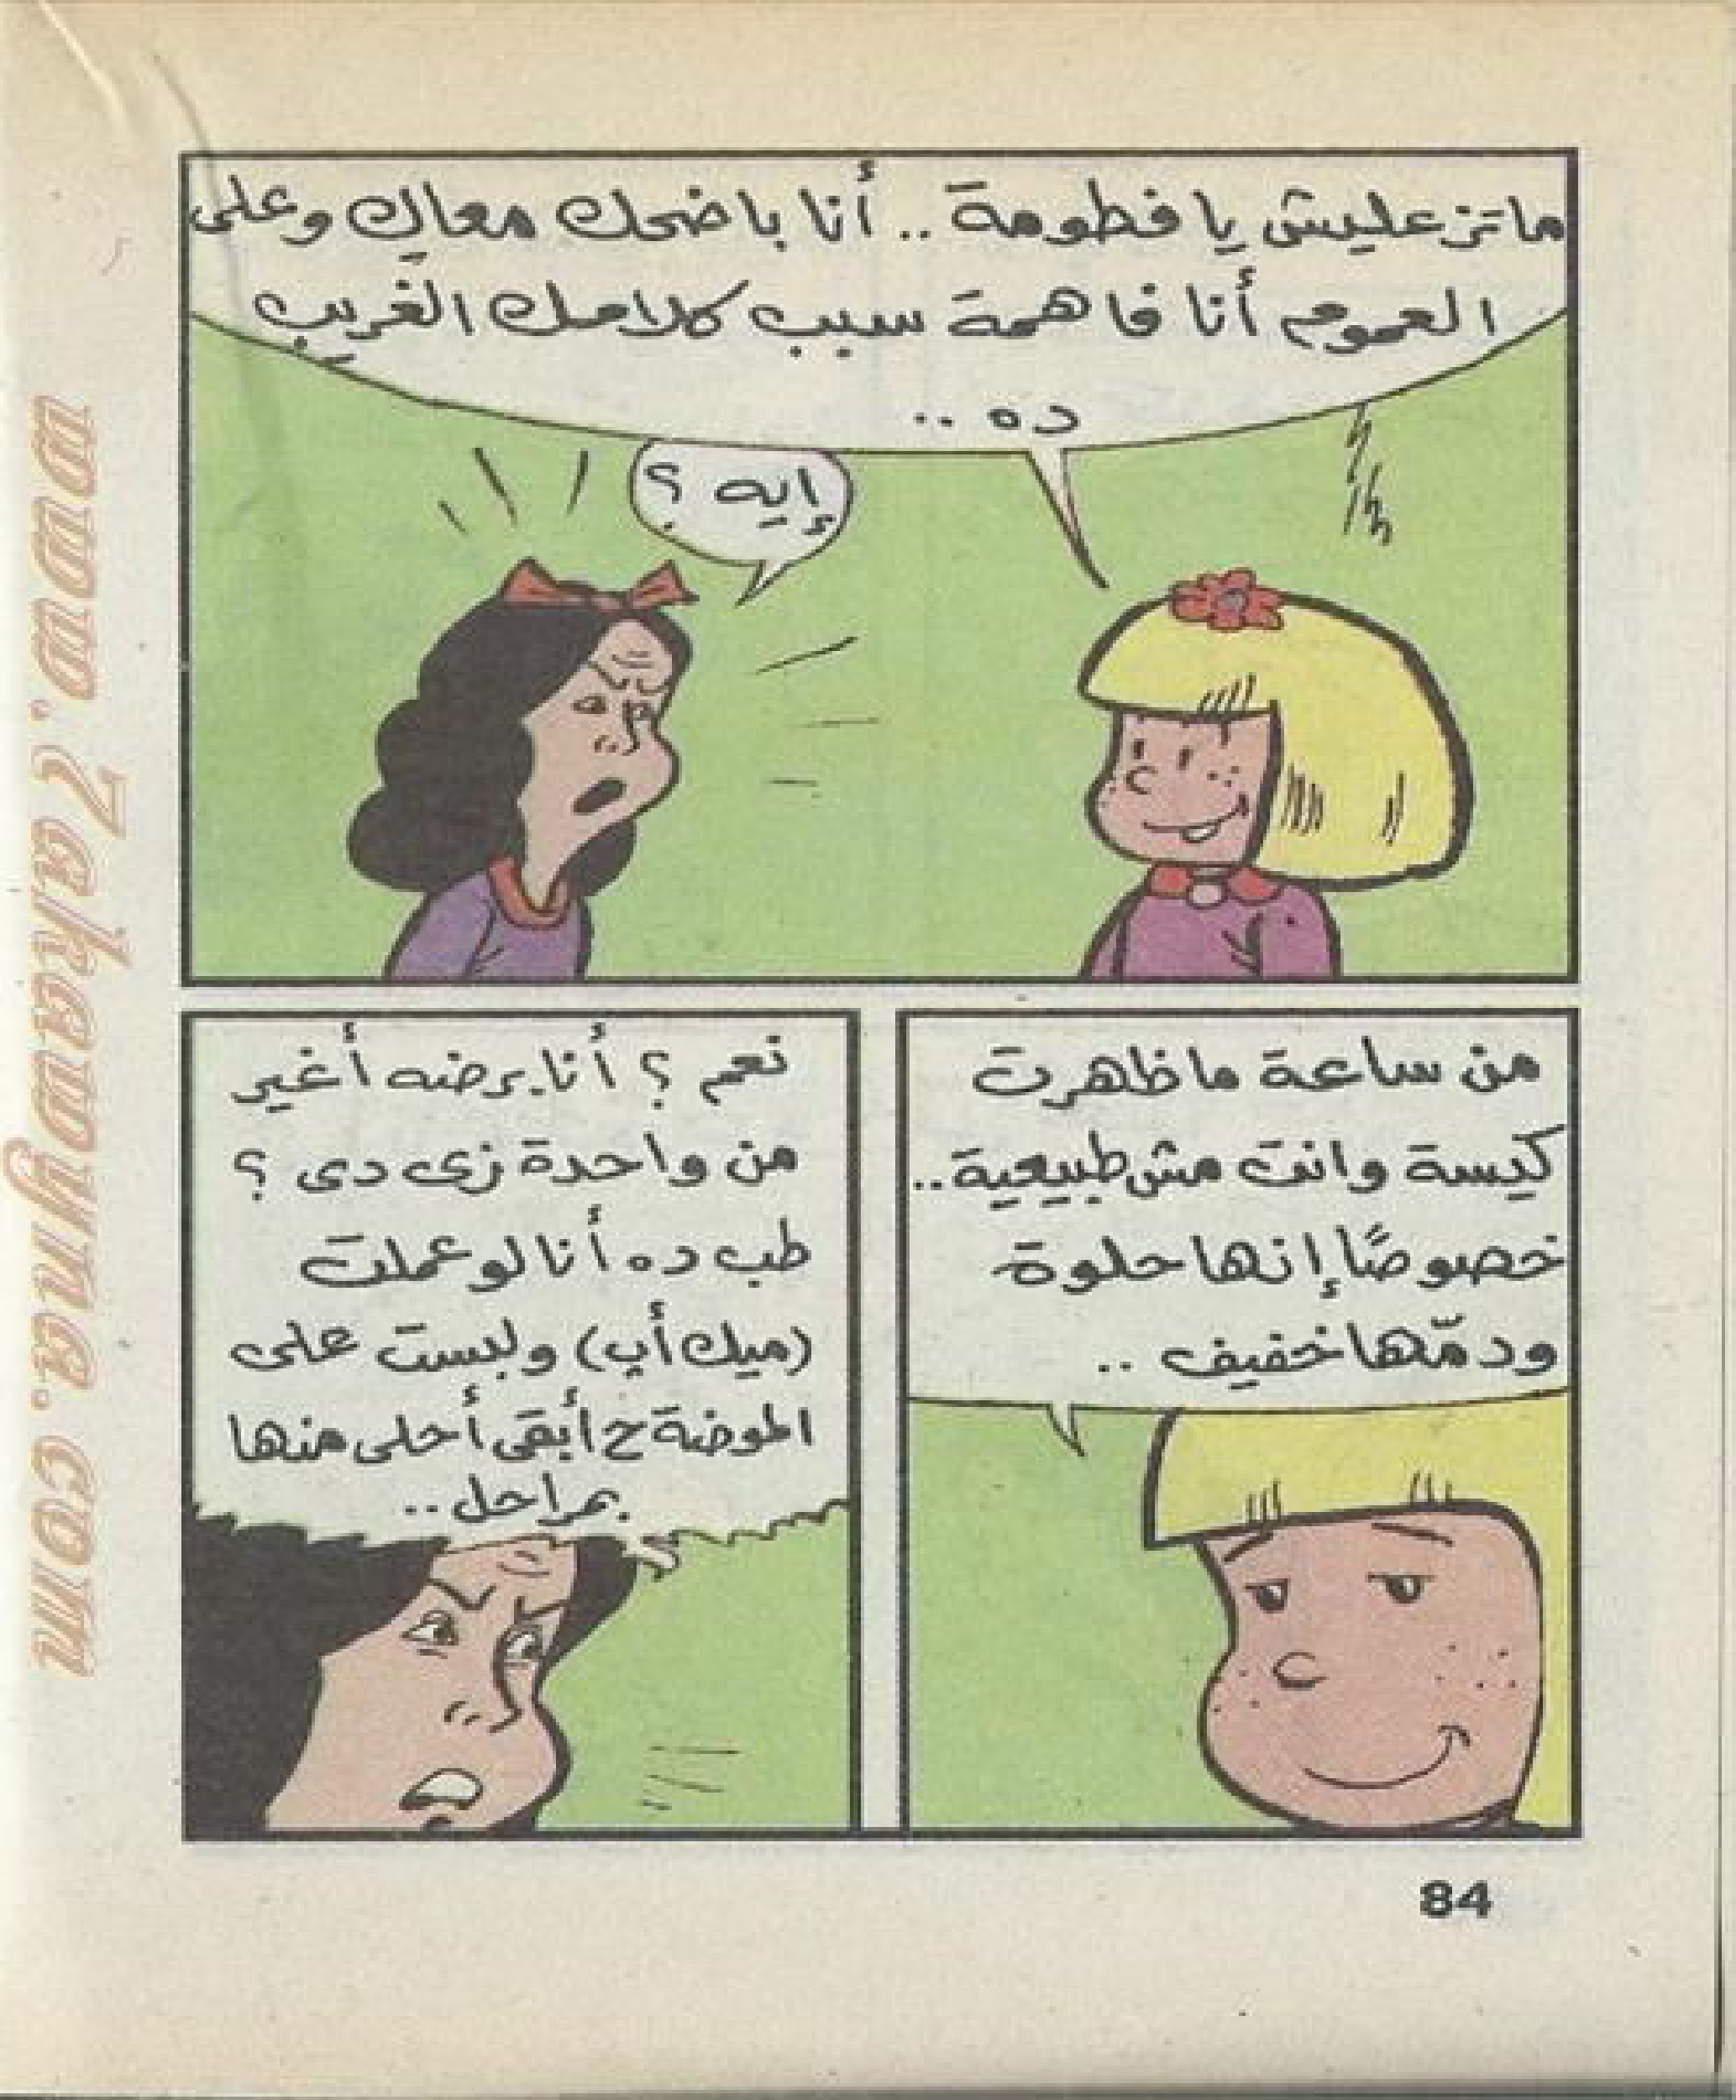 ماتزعليش يا فطومة .. أنا باضحك معاكِ وعلى
العموم أنا فاهمة سبب كلامك الغريب
ده ..
إيه ؟
من ساعة ما ظهرت
كيسة وانت مش طبيعية ..
خصوصًا إنها حلوة
ودمّها خفيف ..
نعم ؟ أنا برضه أغير
من واحدة زى دى ؟
طب ده أنا لو عملت
(ميك أپ) ولبست على
الموضة ح أبقى أحلى منها
بمراحل ..
84
www.7akawyna.com